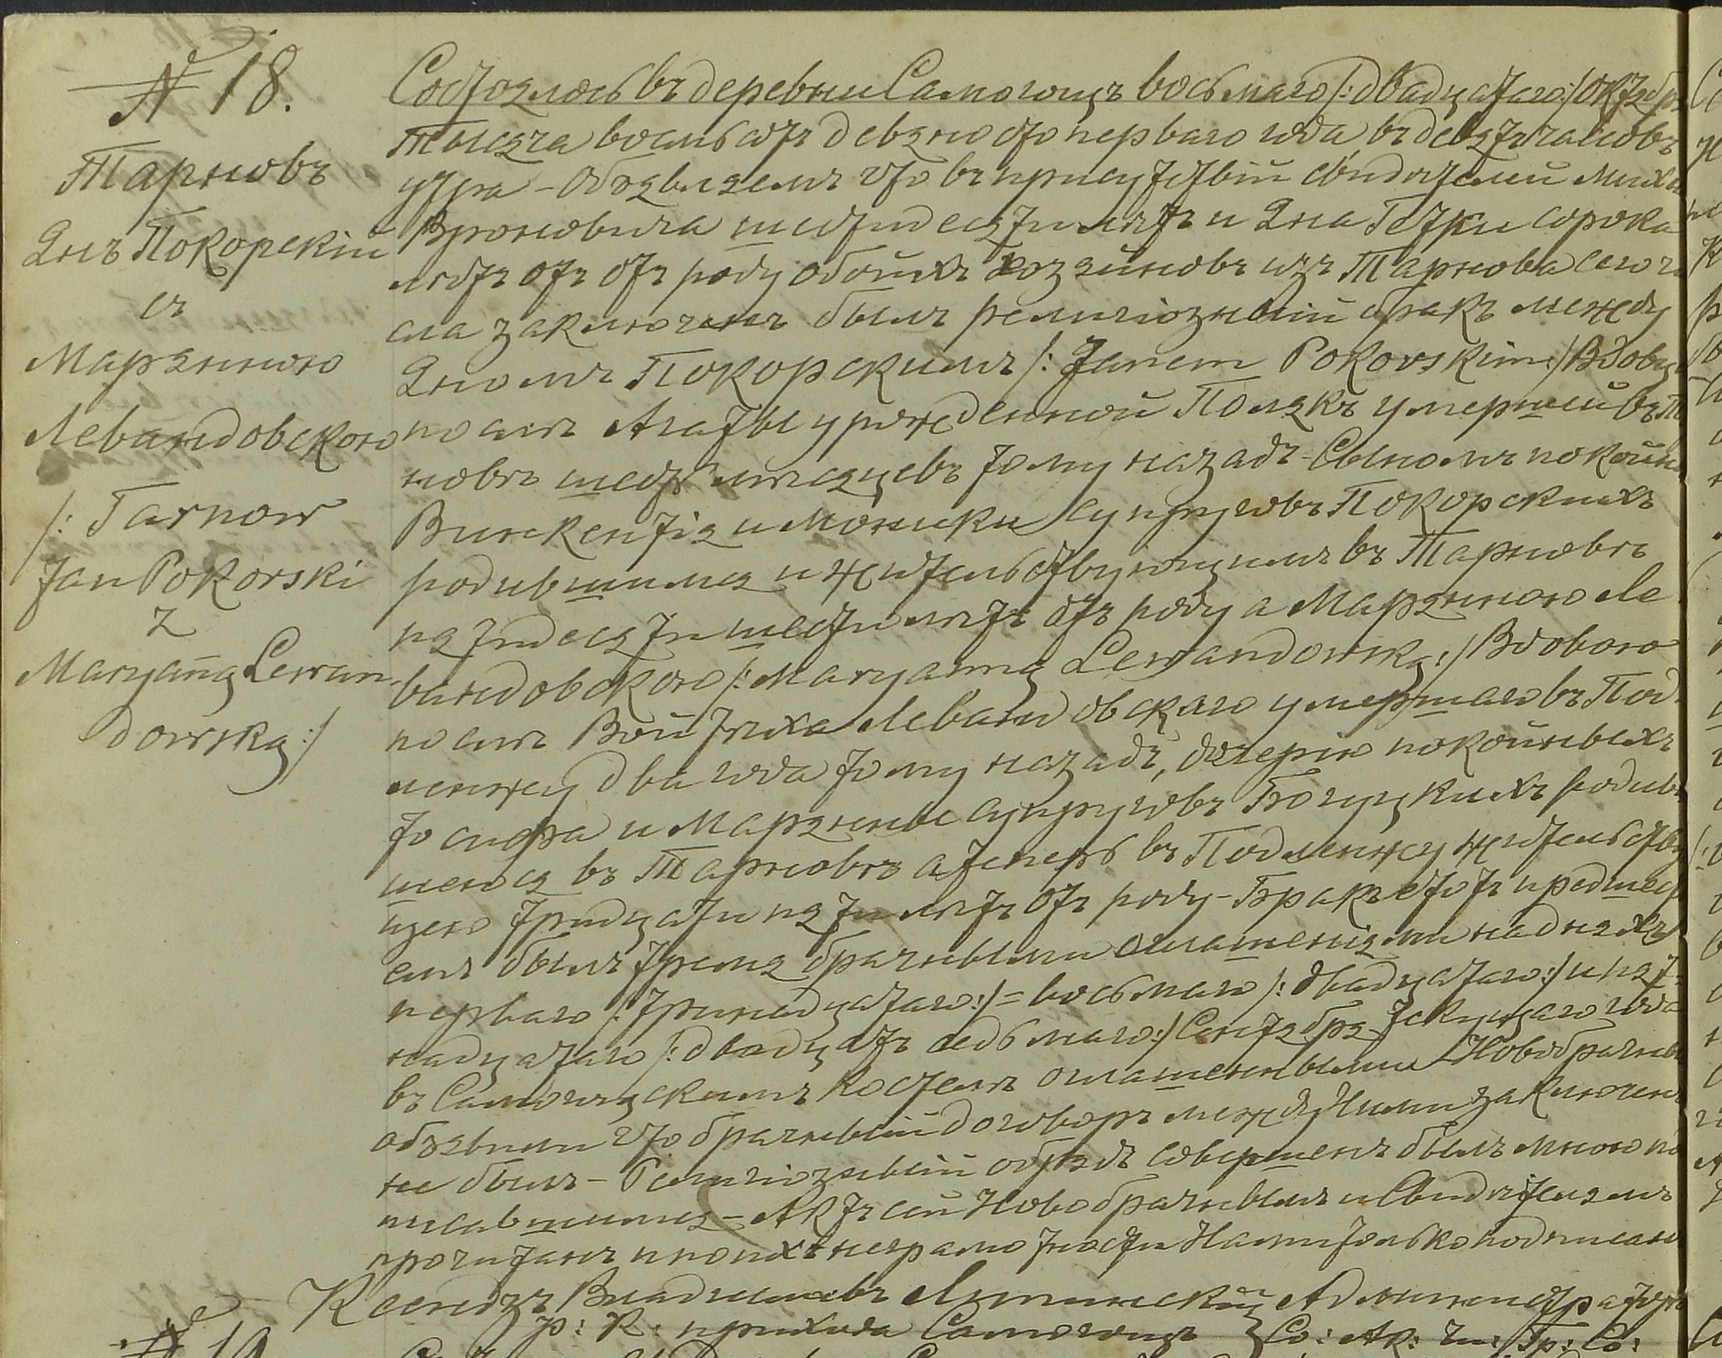 № 18.
Тарновъ
Янъ Покорскій
съ
Марянною
Левандовскою
/: Tarnow
Jan Pokorski
z
Maryanną Lewan
dowską :/
Состоялось въ деревни Самогощъ восьмаго /: двадцатаго :/ Октябр
Тысяча восьмсотъ девяносто перваго года въ девять часовъ
утра – Объявляемъ что въ присутствіи свидѣтелей Миха
Вроновича шестидесяти лѣтъ и Яна Гетки сорока
лѣтъ отъ отъ роду обоихъ хозяиновъ изъ Тарнова сего чи
сла заключенъ былъ религіозный бракъ между
Яномъ Покорскимъ /: Janem Pokorskim :/ Вдовц
послѣ Агаты урожденной Полякъ умершей въ Та
новѣ шесть мѣсяцевъ тому назадъ – Сыномъ покойн
Винкентія и Моники супруговъ Покорскихъ
родившимся и жительствующимъ въ Тарновѣ
пятидесяти шести лѣтъ отъ роду а Марянною Ле
вандовскою /: Maryanną Lewandowską :/ Вдовою
послѣ Войтѣха Левандовскаго умершаго въ Под
ленжу два года тому назадъ, дочерію покойныхъ
Іосифа и Марянны супруговъ Богуцкихъ родив
шеюся въ Тарновѣ а теперь въ Подленжу жительству
щею тридцати пяти лѣтъ отъ роду – Бракъ етотъ предшест
емъ былъ тремя брачными оглашеніями на дняхъ
перваго /: тринадцатаго :/ = восьмаго /: двадцатаго :/ и пят
надцатаго /: двадцать седьмаго :/ Сентября текущаго года
въ Самогощскимъ костелѣ оглашенными Новобрачны
объявили что брачный договоръ между Ними заключенъ
не былъ – Религіозный обрядъ совершенъ былъ мною по
писавшимся – Актъ сей Новобрачнымъ и Свидѣтелямъ
прочитанъ и по ихъ неграмотности Нами только подписанъ
Ксендзъ Владиславъ Администраторъ
Р: К: прихода Самогощъ Со: Ак: Гр: Со:
№ 19